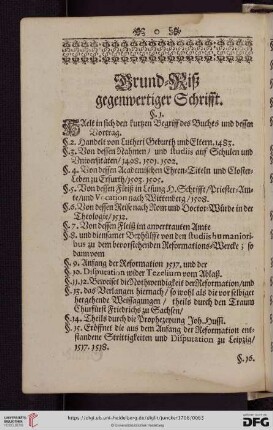 o
Grund-Riß
gegenwertiger Schrifft.
§. 1.
Hält in sich den kurtzen Begriff des Buches und dessen
Vortrag.
§. 2. Handelt von Lutheri Geburth und Eltern. 1483.
§. 3. Von dessen Nahmen / und studiis auf Schulen und
Universitäten / 1498. 1501. 1502.
§. 4. Von dessen Academischen Ehren-Titeln und Closter-
Leben zu Erfurth / 1503. 1505.
§. 5. Von dessen Fleiß in Lesung H. Schrifft / Priester-Am-
te / und Vocation nach Wittenberg / 1508.
§. 6. Von dessen Reise nach Rom und Doctor-Würde in der
Theologie / 1512.
§. 7. Von dessen Fleiß im anvertrauten Amte
§. 8. und diensamer Beyhülffe von den studiis humaniori-
bus zu dem bevorstehenden Reformations-Wercke ; so
dann vom
§. 9. Anfang der Reformation 1517. und der
§. 10. Disputation wider Tezelium vom Ablaß.
§. 11. 12. Beweiset die Nothwendigkeit der Reformation / und
§. 13. das Verlangen hiernach / so wohl als die vor selbiger
hergehende Weissagungen / theils durch den Traum
Churfürst Friedrichs zu Sachsen /
§. 14. Theils durch die Prophezeyung Joh. Hussi.
§. 15. Eröffnet die aus dem Anfang der Reformation ent-
standene Strittigkeiten und Disputation zu Leipzig /
1517. 1518.
§. 16.
UNIVERSITÄTS-
BIBLIOTHEK
HEIDELBERG
© Universitätsbibliothek Heidelberg